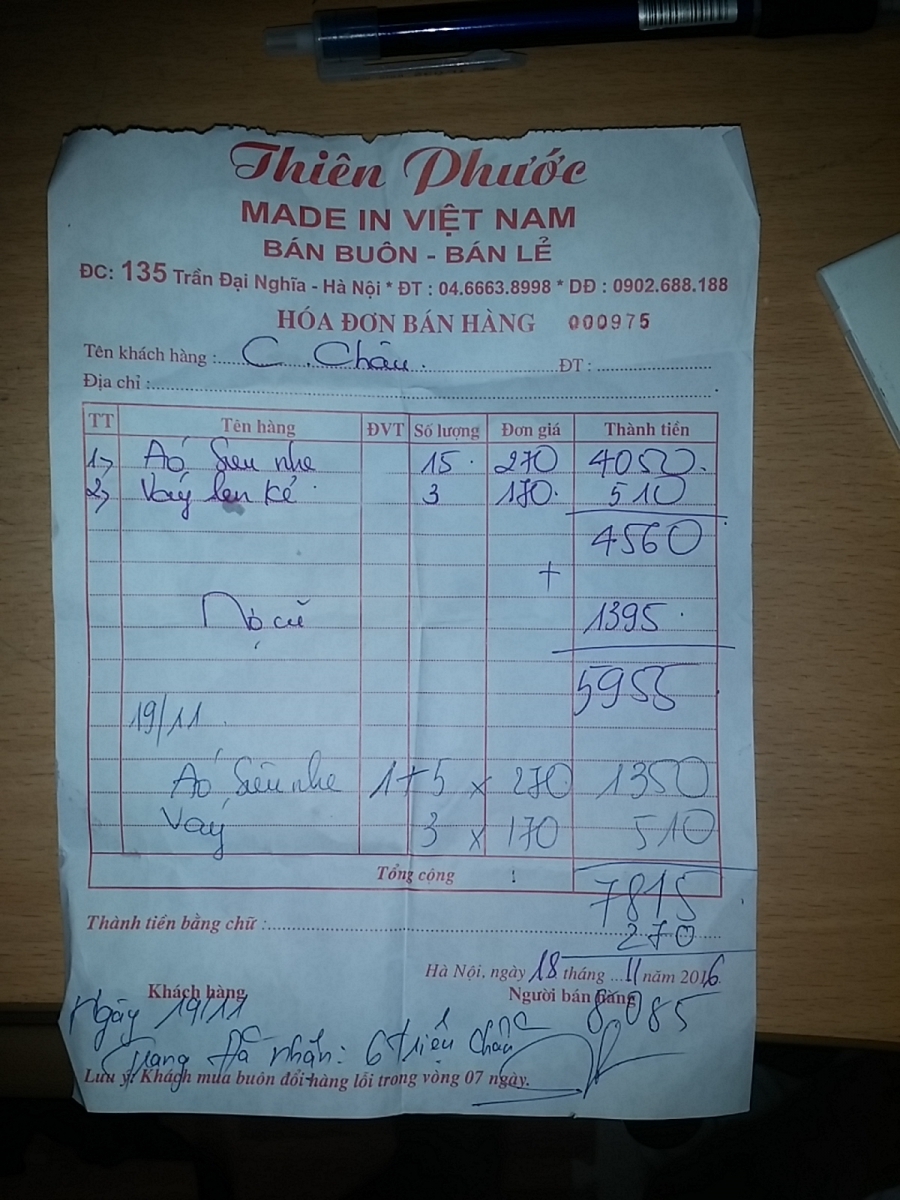 Thiên Phước
MADE IN VIỆT NAM
BÁN BUÔN - BÁN LẺ
ĐC: 135 Trần Đại Nghĩa - Hà Nội * ĐT : 04.6663.8998 * DĐ : 0902.688.188
HÓA ĐƠN BÁN HÀNG 000975
Tên khách hàng : C. Châu. ĐT :
Địa chỉ :
TT Tên hàng ĐVT Số lượng Đơn giá Thành tiền
1, Aó Siêu nhe 15 270 4050
2, Vaý len kẻ 3 170 510
4560
+
Nợ cũ 1395
5955
19/11
Aó Siêu nhe 1+5 x 270 1350
Vaý 3 x 170 510
Tổng cộng
7815
Thành tiền bằng chữ :
270
Hà Nội, ngày 18 tháng 11 năm 2016
Khách hàng Người bán hàng
8085
Ngày 19/11
Quang Đã nhận: 6 triệu Châu
Lưu ý: Khách mua buôn đổi hàng lỗi trong vòng 07 ngày.